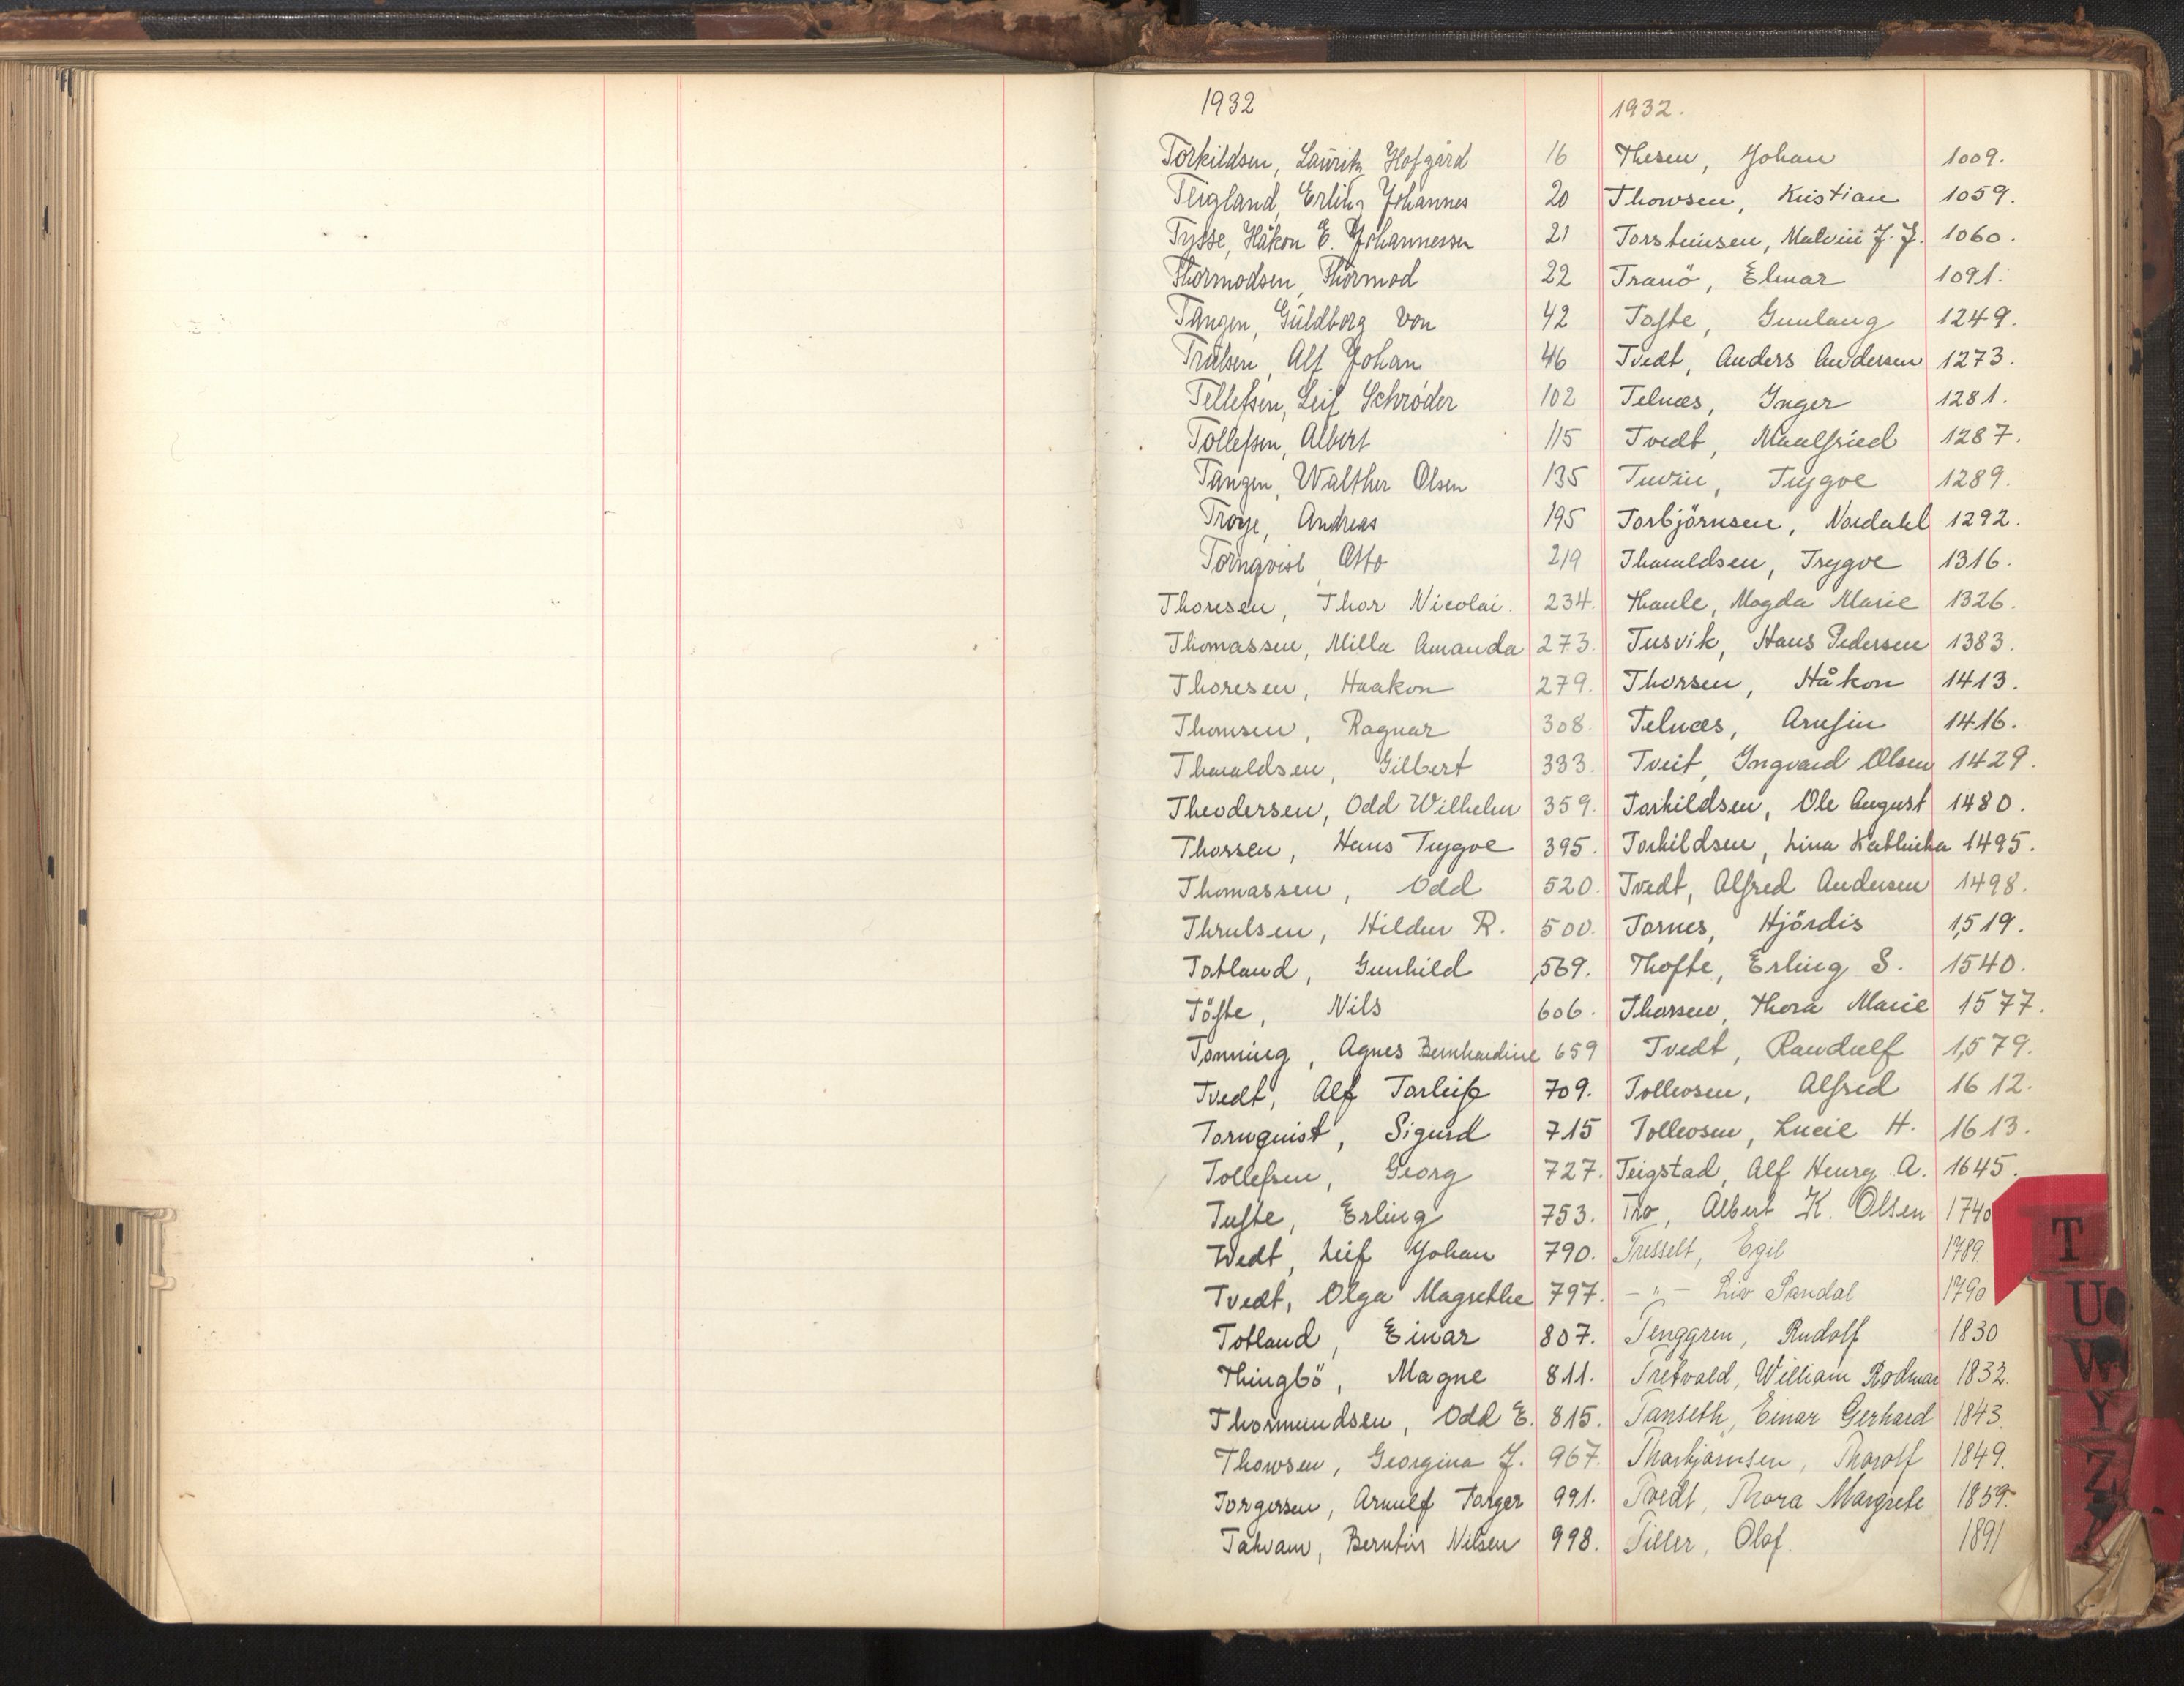 1932
Torkildsen, Lauritz Hofgård 16
Teigland, Erling Johannes 20
Tysse, Håkon E. Johannessen 21
Thormodsen, Thormod 22
Tangen, Guldborg von 42
Trulsen, Alf Johan 46
Tellefsen, Leif Schrøder 102
Tollefsen, Albert 115
Tangen, Walther Olsen 135
Troye, Andreas 195
Tornqvist, Otto 219
Thoresen, Thor Nicolai. 234.
Thomassen, Milla Amanda 273.
Thoresen, Haakon 279.
Thomsen, Ragnar 308.
Tharaldsen, Gilbert 333.
Theodersen, Odd Wilhelm 359.
Thorsen, Hans Trygve 395.
Thomassen, Odd 520.
Thrulsen, Hildur R. 500.
Totland, Gunhild 569.
Töfte, Nils 606.
Tonning, Agnes Bernhardine 659
Tvedt, Alf Torleif 709.
Tornquist, Sigurd 715
Tollefsen, Georg 727.
Tufte, Erling 753.
Tvedt, Leif Johan 790.
Tvedt, Olga Magrethe 797.
Totland, Einar 807.
Thingbö, Magne 811.
Thormundsen, Odd E. 815.
Thowsen, Georgina J. 967.
Torgersen, Arnulf Torger 991.
Takvam, Berntin Nilsen 998.
1932.
Thesen, Johan 1009.
Thowsen, Kristian 1059.
Torsteinsen, Malvin J. J. 1060.
Tranö, Elmar 1091.
Tofte, Gunlaug 1249.
Tvedt, Anders Andersen 1273.
Telnæs, Inger 1281.
Tvedt, Maalfried 1287.
Tuvin, Trygve 1289.
Torbjörnsen, Nordahl 1292.
Tharaldsen, Trygve 1316.
Thaule, Magda Marie 1326.
Tusvik, Hans Pedersen 1383.
Thorsen, Håkon 1413.
Telnæs, Arnfin 1416.
Tveit, Ingvard Olsen 1429.
Torkildsen, Ole August 1480.
Torkildsen, Lina Kathinka 1495.
Tvedt, Alfred Andersen 1498.
Tornes, Hjördis 1519.
Thofte, Erling S. 1540.
Thorsen, Thora Marie 1577.
Tvedt, Randulf 1579.
Tollevsen, Alfred 1612.
Tollevsen, Lucie H. 1613.
Teigstad, Alf Henry A. 1645.
Tho, Albert K. Olsen 1740
Tresselt, Egil 1789
- " - Liv Sandal 1790
Tenggren, Rudolf 1830
Tretvold, William Rodmar 1832.
Tanseth, Einar Gerhard 1843.
Thorbjørnsen, Thorolf 1849.
Tvedt, Thora Margrete 1859.
Tiller, Olaf. 1891
T
U
W
Y
Z